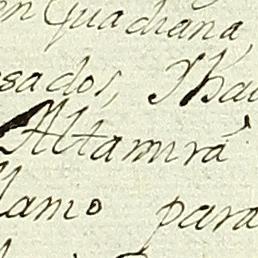 en Guadiana,
sados, Iba
Altamira
llamo para